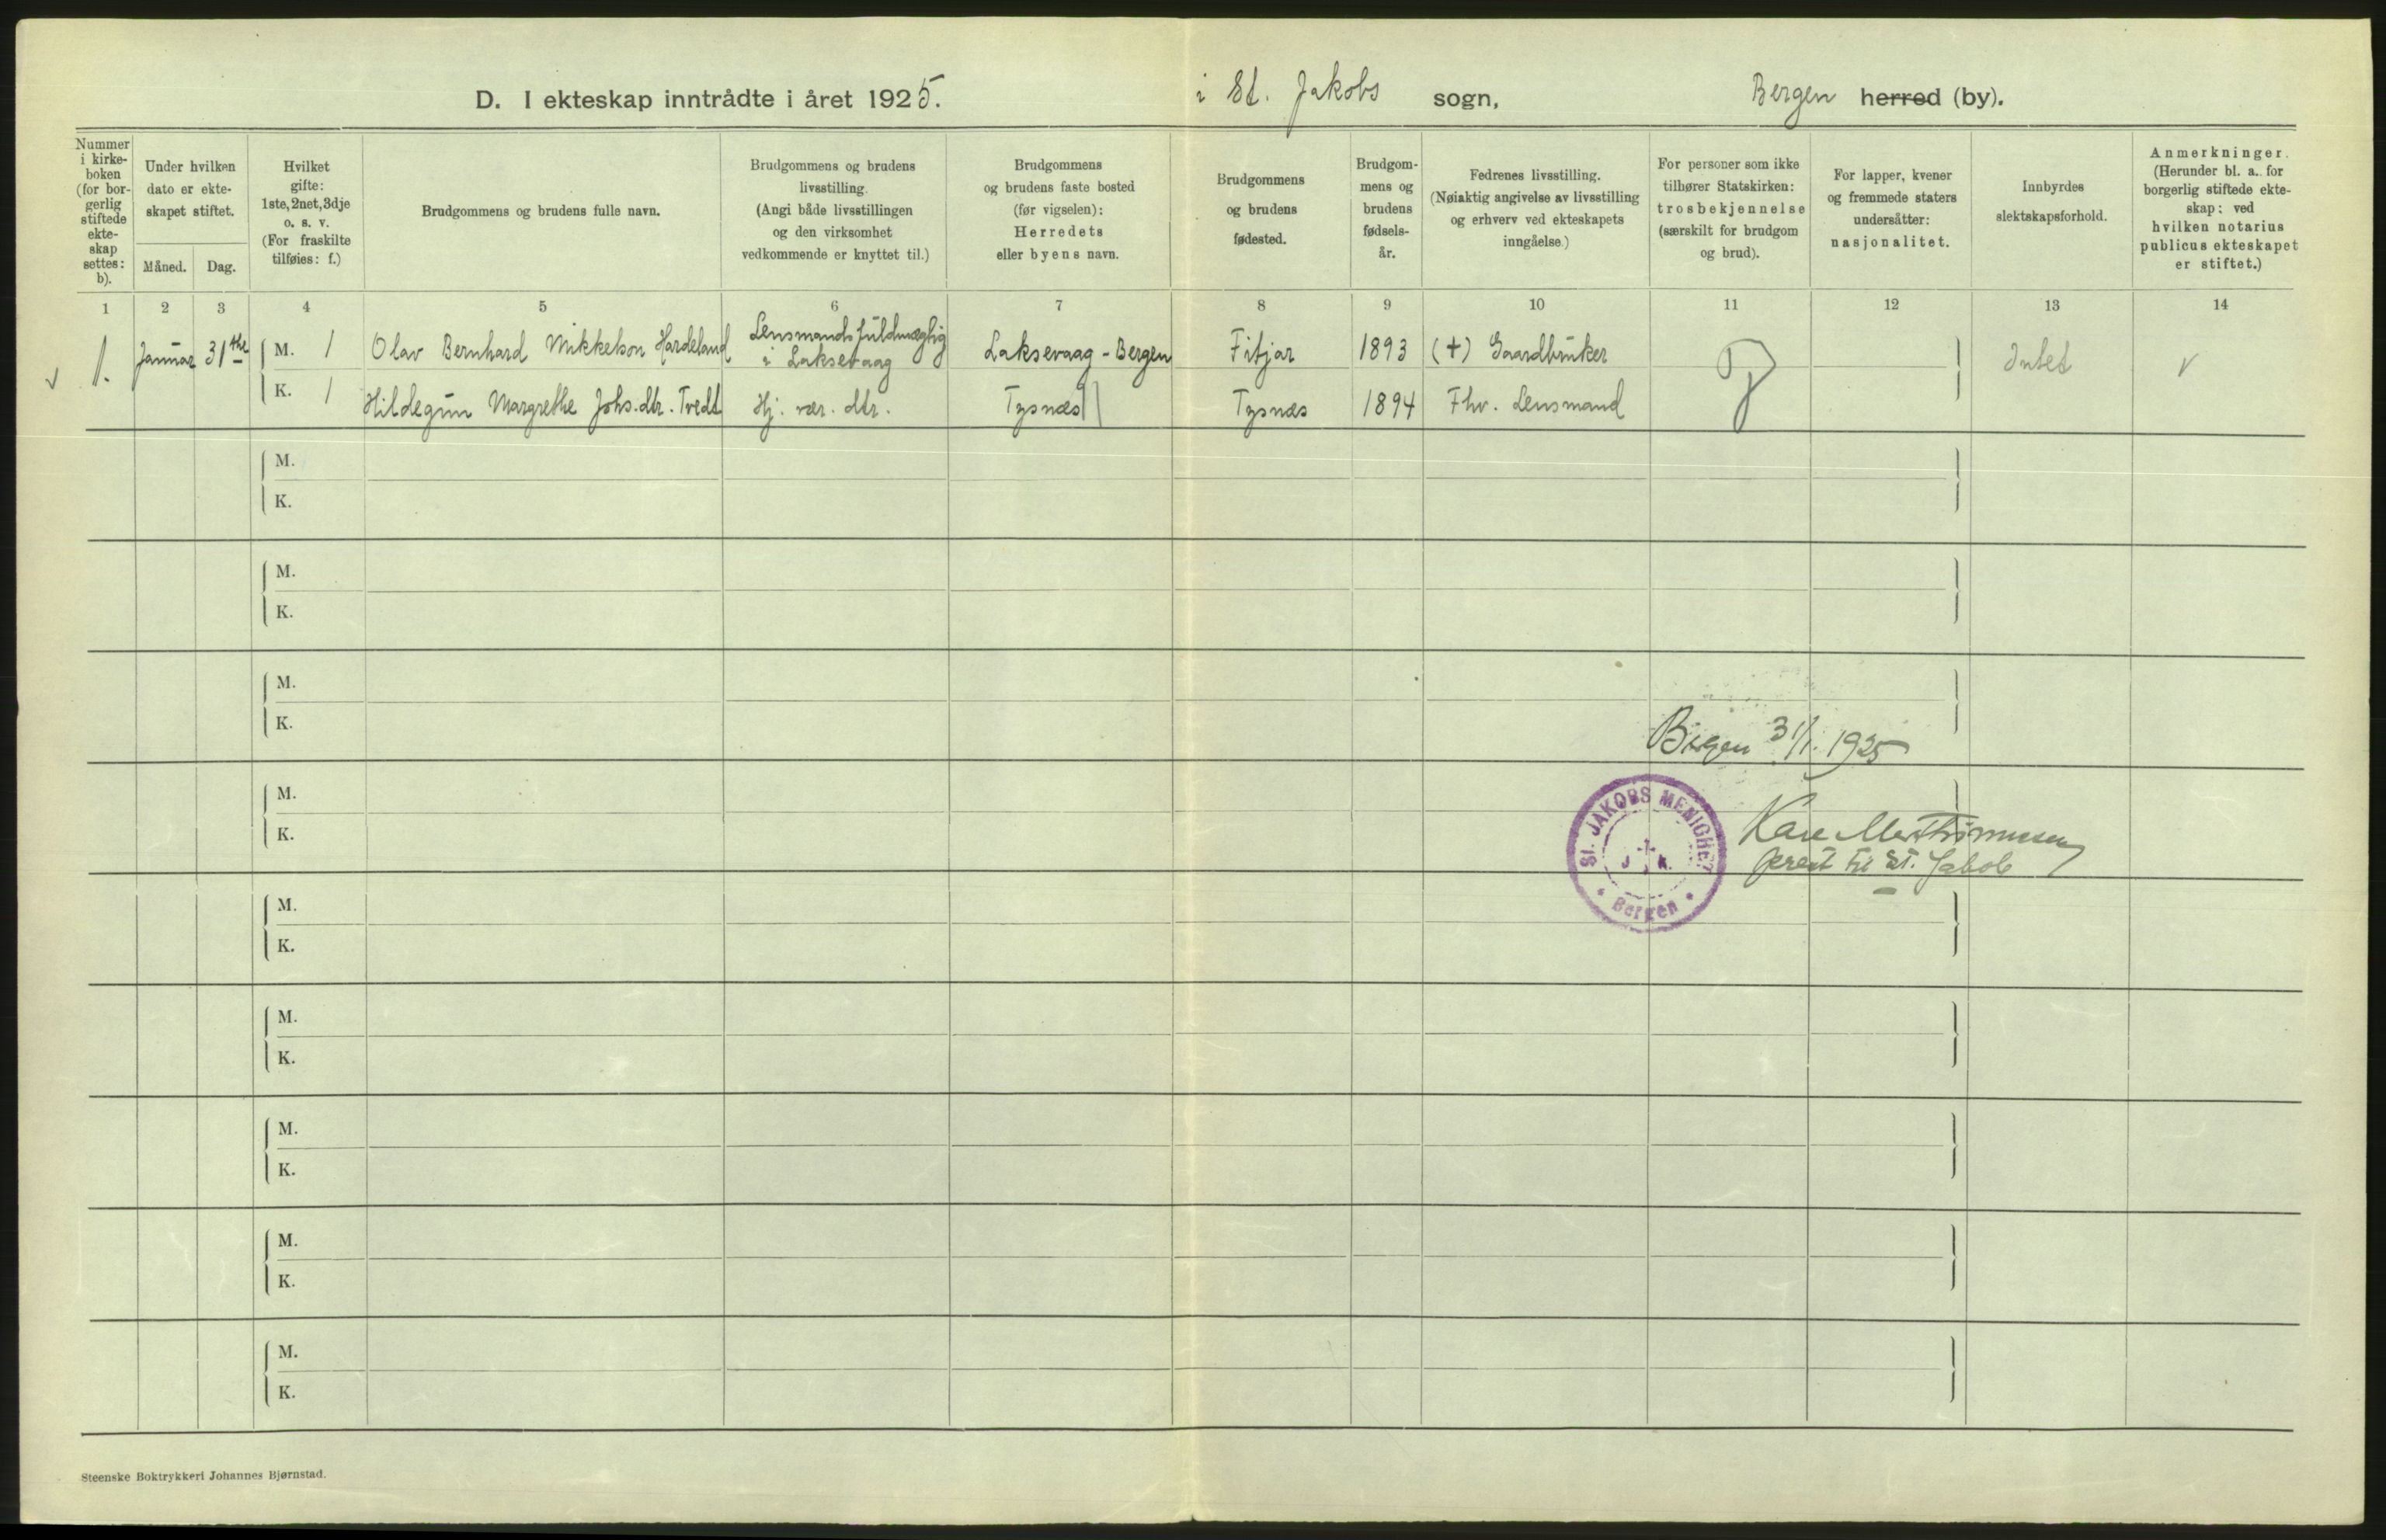 D. I ekteskap inntrådte i året 1925.
i St. Jakobs sogn,
Bergen herred (by).
Nummer
i kirke-
boken
(for bor-
gerlig
stiftede
ekte-
skap
settes:
b).
Under hvilken
dato er ekte-
skapet stiftet.
Måned.
Dag.
Hvilket
gifte:
1ste, 2net, 3dje
o. s. v.
(For fraskilte
tilføies: f.)
Brudgommens og brudens fulle navn.
Brudgommens og brudens
livsstilling.
(Angi både livsstillingen
og den virksomhet
vedkommende er knyttet til.)
Brudgommens
og brudens faste bosted
(før vigselen):
Herredets
eller byens navn.
Brudgommens
og brudens
fødested.
Brudgom-
mens og
brudens
fødsels-
år.
Fedrenes livsstilling.
(Nøiaktig angivelse av livsstilling
og erhverv ved ekteskapets
inngåelse.)
For personer som ikke
tilhører Statskirken:
trosbekjennelse
(særskilt for brudgom
og brud).
For lapper, kvener
og fremmede staters
undersåtter:
nasjonalitet.
Innbyrdes
slektskapsforhold.
Anmerkninger.
(Herunder bl. a. for
borgerlig stiftede ekte-
skap: ved
hvilken notarius
publicus ekteskapet
er stiftet.)
1 2 3 4 5 6 7 8 9 10 11 12 13 14
1. Januar 31te
M. 1 Olav Bernhard Mikkelson Hardeland
Lensmandsfuldmægtig
i Laksevaag
Laksevaag - Bergen
Fitjar
1893
(+) Gaardbruker
Intet
K. 1 Hildegun Margrethe Johs.dtr. Tvedt
Hj. vær. dtr.
Tysnæs
Tysnæs
1894
Fhv. Lensmand
M.
K.
M.
K.
M.
K.
Bergen 31/1. 1925
M.
K.
ST. JAKOBS MENIGHET
J. K.
Bergen
prest til St. Jakob
M.
K.
M.
K.
M.
K.
M.
K.
M.
K.
Steenske Boktrykkeri Johannes Bjørnstad.